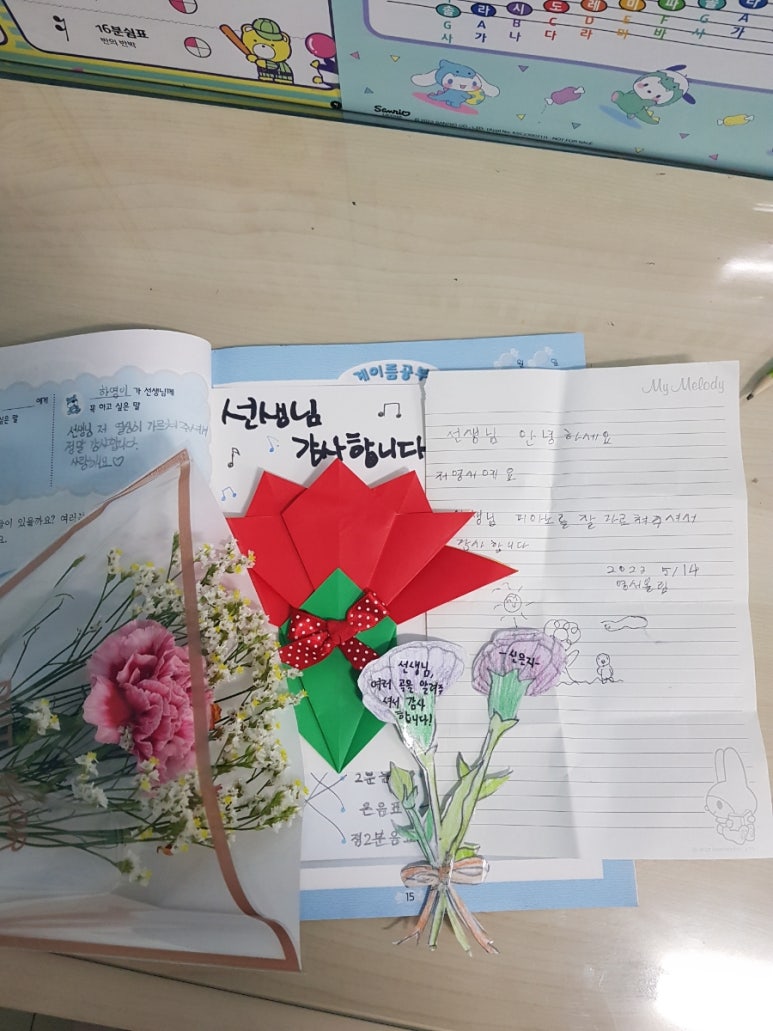 16분쉼표
반의 반박
솔 라 시 도 레 미 파 솔 라
G A B C D E F G A
사 가 나 다 라 마 바 사 가
Sanrio
계이름공부
에게
하영이 가 선생님께
꼭 하고 싶은 말
선생님 저 열심히 가르쳐 주셔서
정말 감사합니다.
사랑해요 ♡
선생님
감사합니다
My Melody
선생님 안녕하세요
저 영서예요
피아노를 잘 가르쳐주셔서
감사합니다
2023 5/14
영서올림
선생님,
여러 곡을 알려주
셔서 감사
합니다!
-신은지-
2분
온음표
점2분음
15